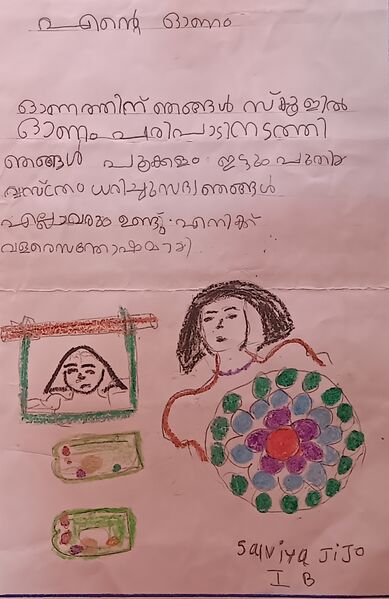 എന്റെ ഓണം
ഓണത്തിന് ഞങ്ങൾ സ്കൂളിൽ
ഓണം പരിപാടിനടത്തി
ഞങ്ങൾ പൂക്കളം ഇട്ടും പുതിയ
വസ്ത്രം ധരിച്ചുസദ്യഞങ്ങൾ
എല്ലാവരും ഉണ്ടു. എനിക്ക്
വളരെസന്തോഷമായി.
Salviya Jijo
I B